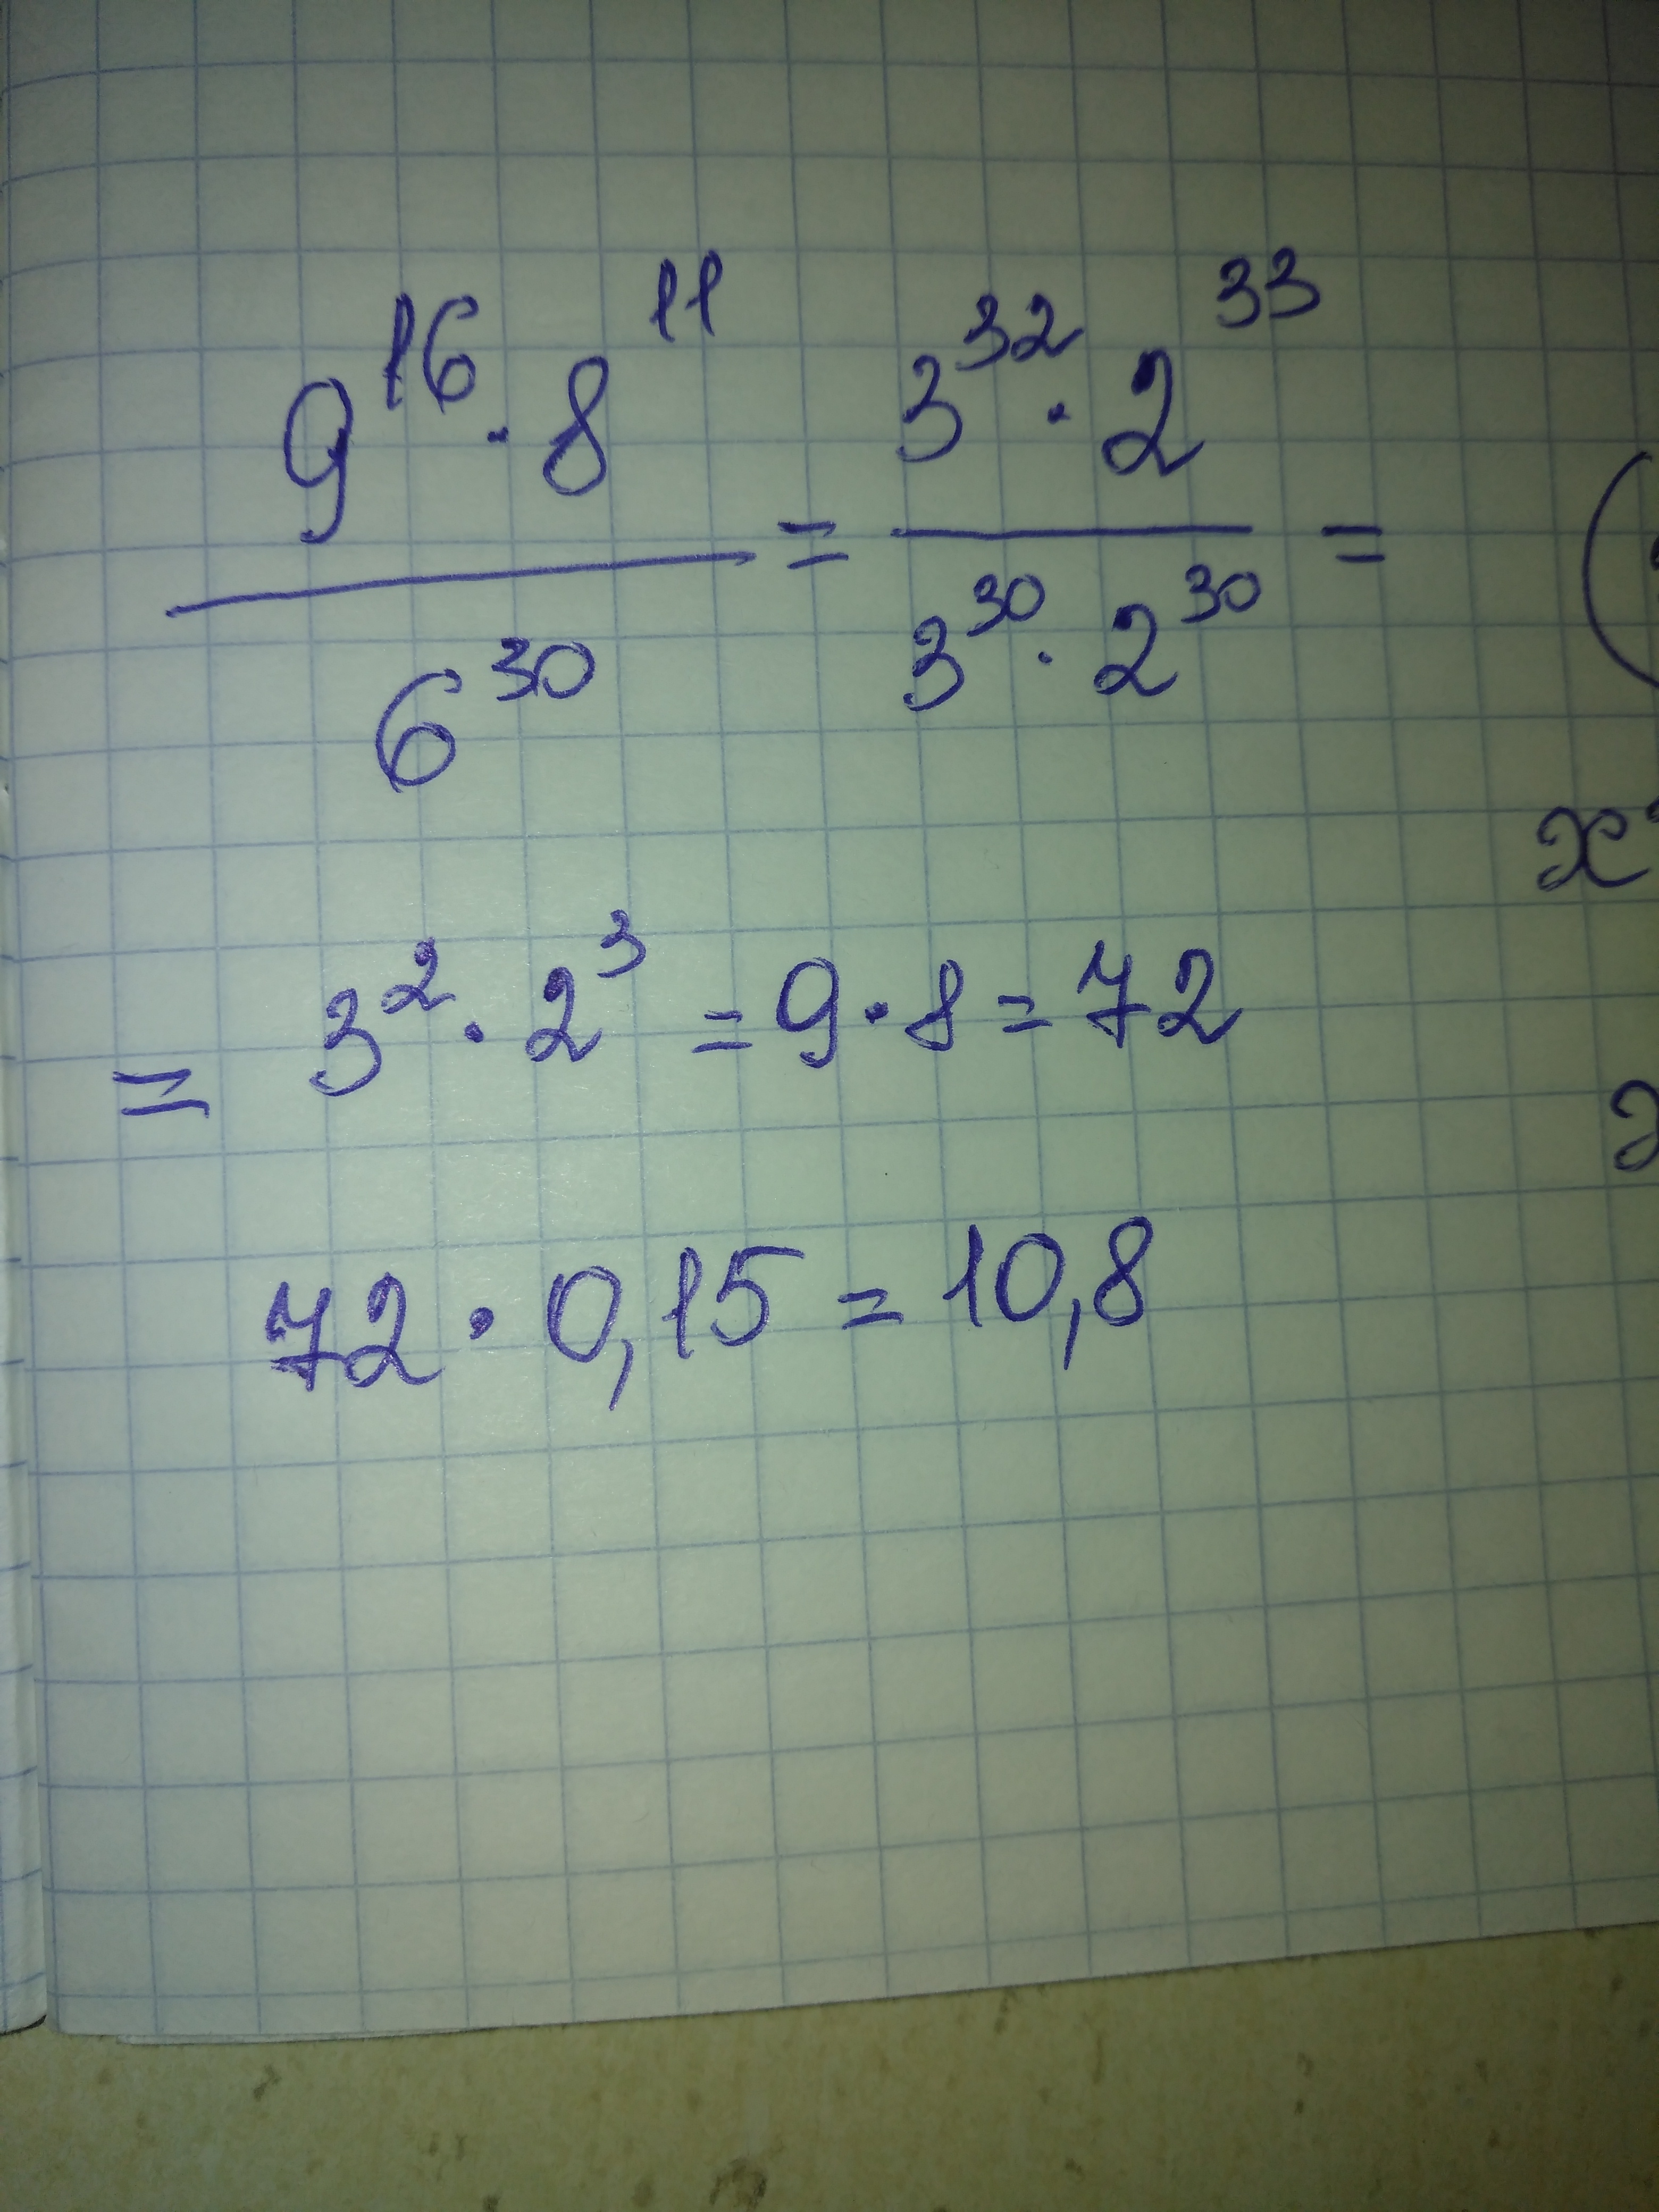 9^16 · 8^11 / 6^30 = 3^32 · 2^33 / 3^30 · 2^30 =
= 3^2 · 2^3 = 9 · 8 = 72
72 · 0,15 = 10,8
(
x